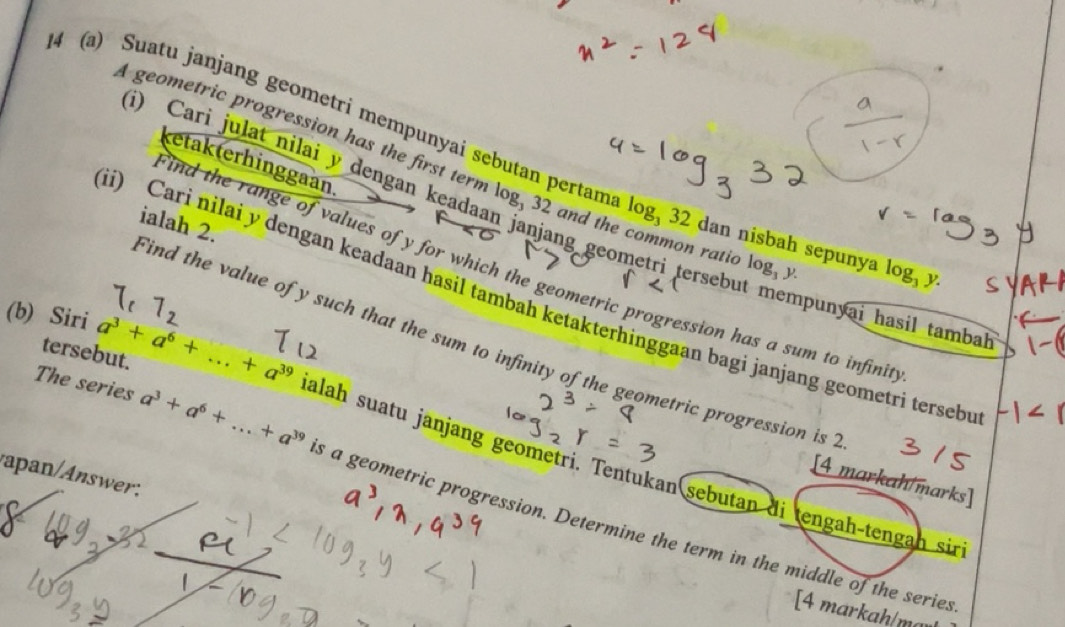 14 (a) Suatu janjang geometri mempunyai sebutan pertama log₃ 32 dan nisbah sepunya log₃ y.
A geometric progression has the first term log₃ 32 and the common ratio log₃ y.
(i) Cari julat nilai y dengan keadaan janjang geometri tersebut mempunyai hasil tambah
ketakterhinggaan.
Find the range of values of y for which the geometric progression has a sum to infinity.
(ii) Cari nilai y dengan keadaan hasil tambah ketakterhinggaan bagi janjang geometri tersebut
ialah 2.
Find the value of y such that the sum to infinity of the geometric progression is 2.
[4 markah/marks]
(b) Siri a³ + a⁶ + ... + a³⁹ ialah suatu janjang geometri. Tentukan sebutan di tengah-tengah siri
tersebut.
The series a³ + a⁶ + ... + a³⁹ is a geometric progression. Determine the term in the middle of the series.
[4 markah/
apan/Answer:
a / 1-r
a = log₃ 32
r = log₃ y
r<0
r>0
r<1
-1<r
T₁ T₂
T₁₂
log₂ r = 3
3/5
-1 < log₃ y < 1